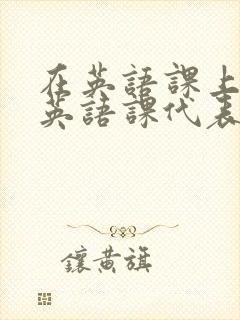 在英語課上
英語課代表
鑲黃旗